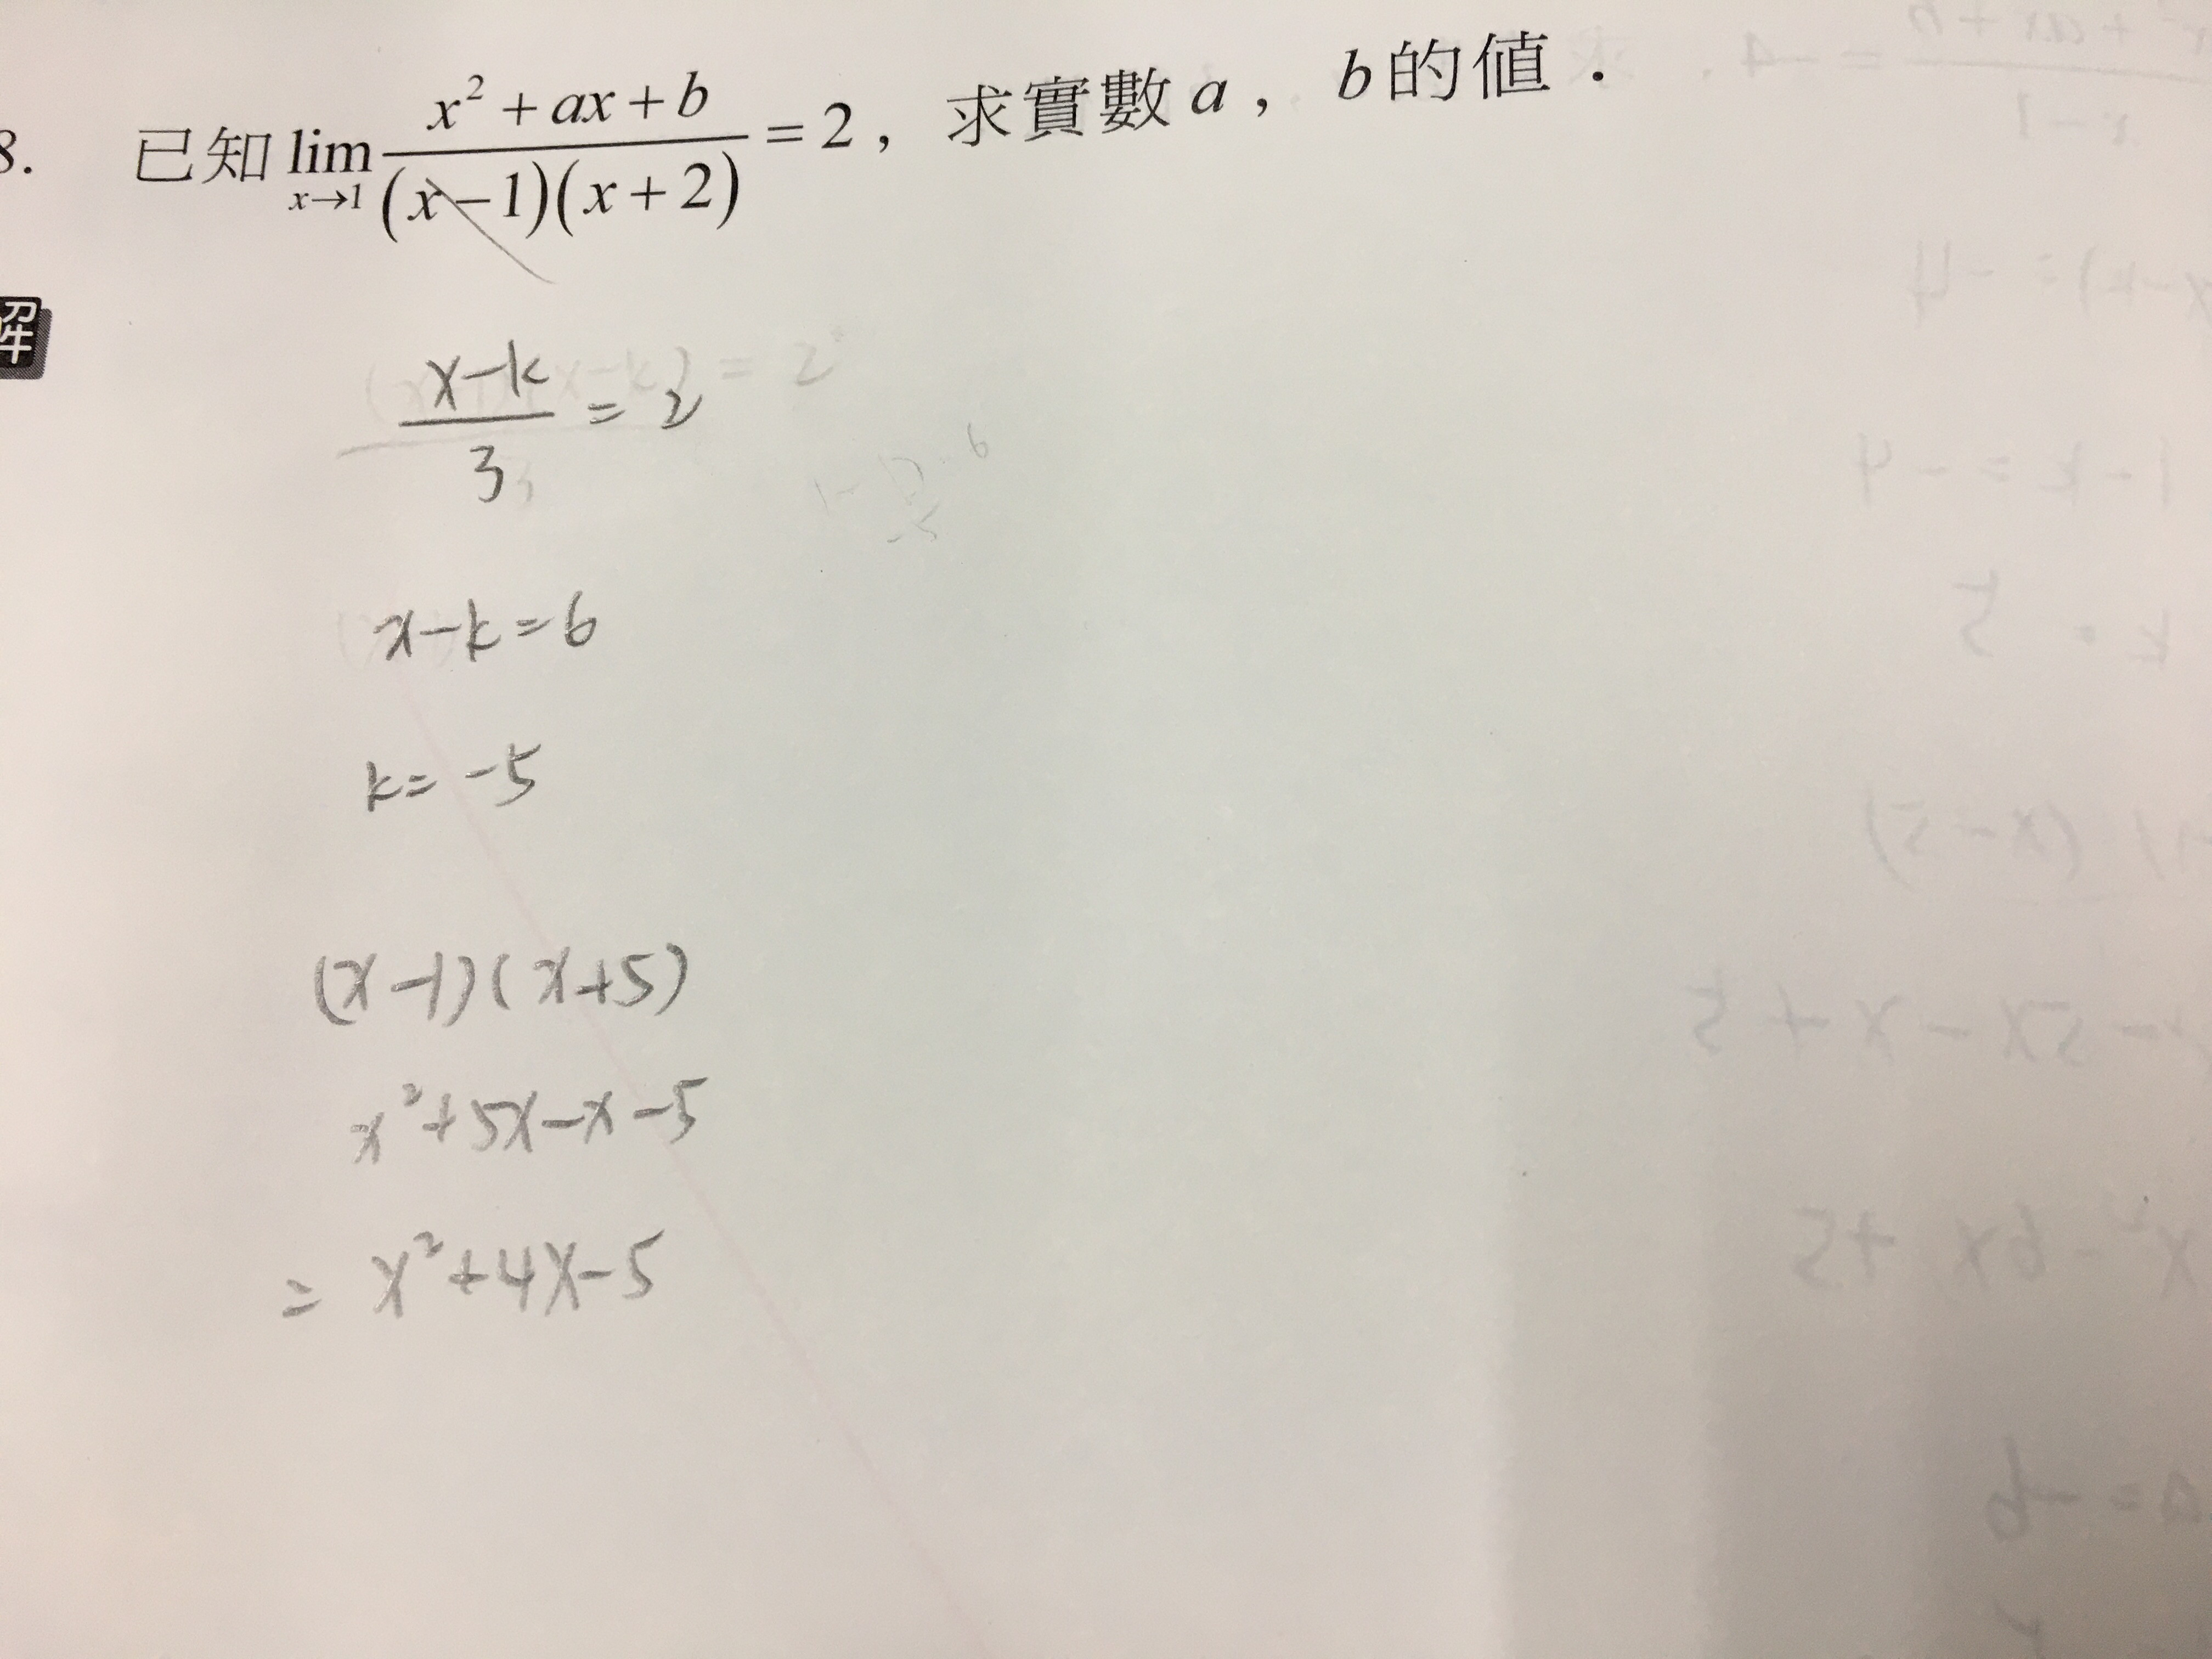 8. 已知 lim x→1 x²+ax+b / (x−1)(x+2) = 2，求實數 a，b 的值．
解
x−k / 3 = 2
x−k=6
k= −5
(x−1)(x+5)
x²+5x−x−5
= x²+4x−5